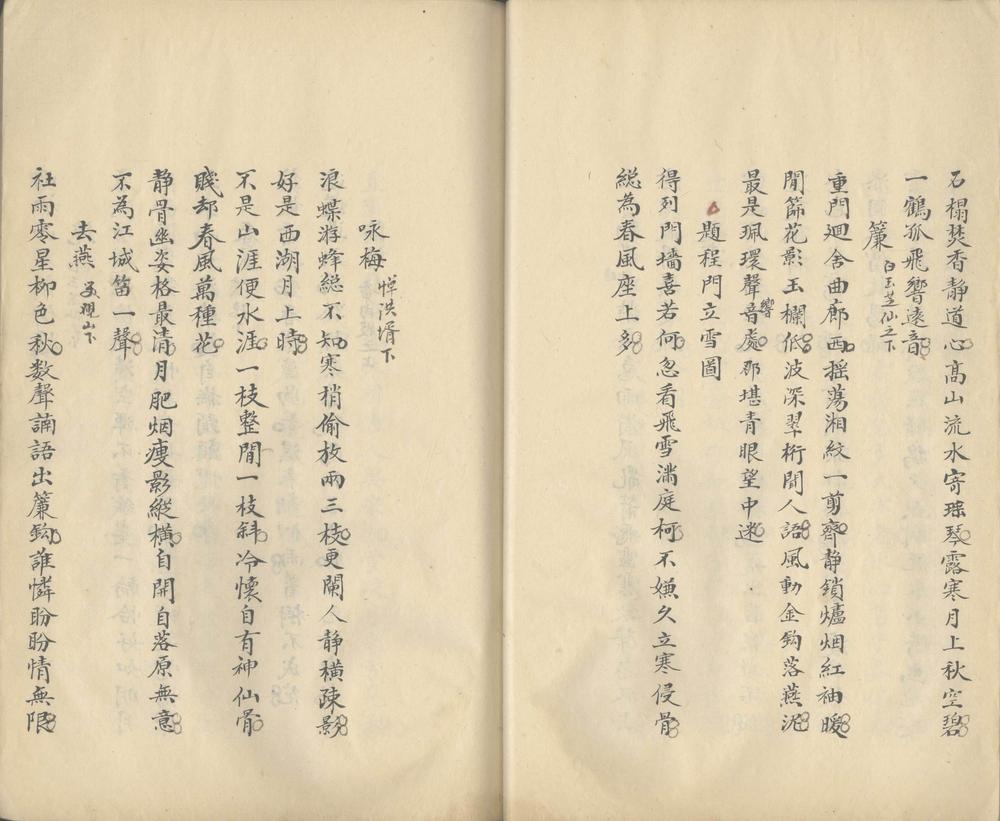 石榻焚香静道心高山流水寄瑶琴露寒月上秋空碧
一鶴孤飛響遠音
簾 白玉芝仙之下
重門迴舍曲廊西摇蕩湘紋一剪齊静鎖爐烟紅袖暖
閒篩花影玉欄低波深翠桁間人語風動金鈎落燕泥
最是珮環聲響處那堪青眼望中迷
題程門立雪圖
得列門墻喜若何忽看飛雪滿庭柯不嫌久立寒侵骨
総為春風座上多
咏梅 悼洪壻下
浪蝶游蜂総不知寒稍偷放兩三枝更闌人静横疎影
好是西湖月上時
不是山涯便水涯一枝整間一枝斜冷懷自有神仙骨
賤却春風萬種花
静骨幽姿格最清月肥烟瘦影縱横自開自落原無意
不為江城笛一聲
去燕 観山下
社雨零星柳色秋数聲諵語出簾鈎誰憐盼盼情無限